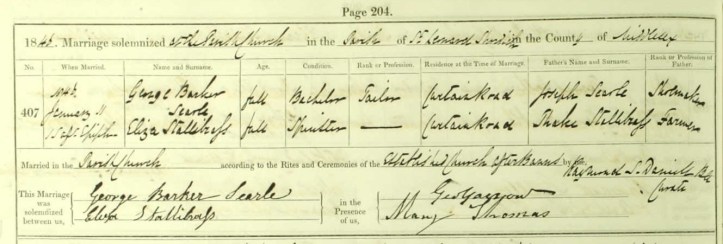 Page 204.
1846. Marriage solemnized at the Parish Church in the Parish of St Leonard Shoreditch in the County of Middlesex
No. When Married. Name and Surname. Age. Condition. Rank or Profession. Residence at the Time of Marriage. Father's Name and Surname. Rank or Profession of Father.
407
January 11
George Barker Searle full Bachelor Tailor Curtain Road Joseph Searle Shoemaker
Eliza Stallibrass full Spinster — Curtain Road Thake Stallibrass Farmer
Married in the Parish Church according to the Rites and Ceremonies of the Established Church after Banns by me
Curate
This Marriage was solemnized between us,
George Barker Searle
Eliza Stallibrass
in the Presence of us,
Mary Thomas